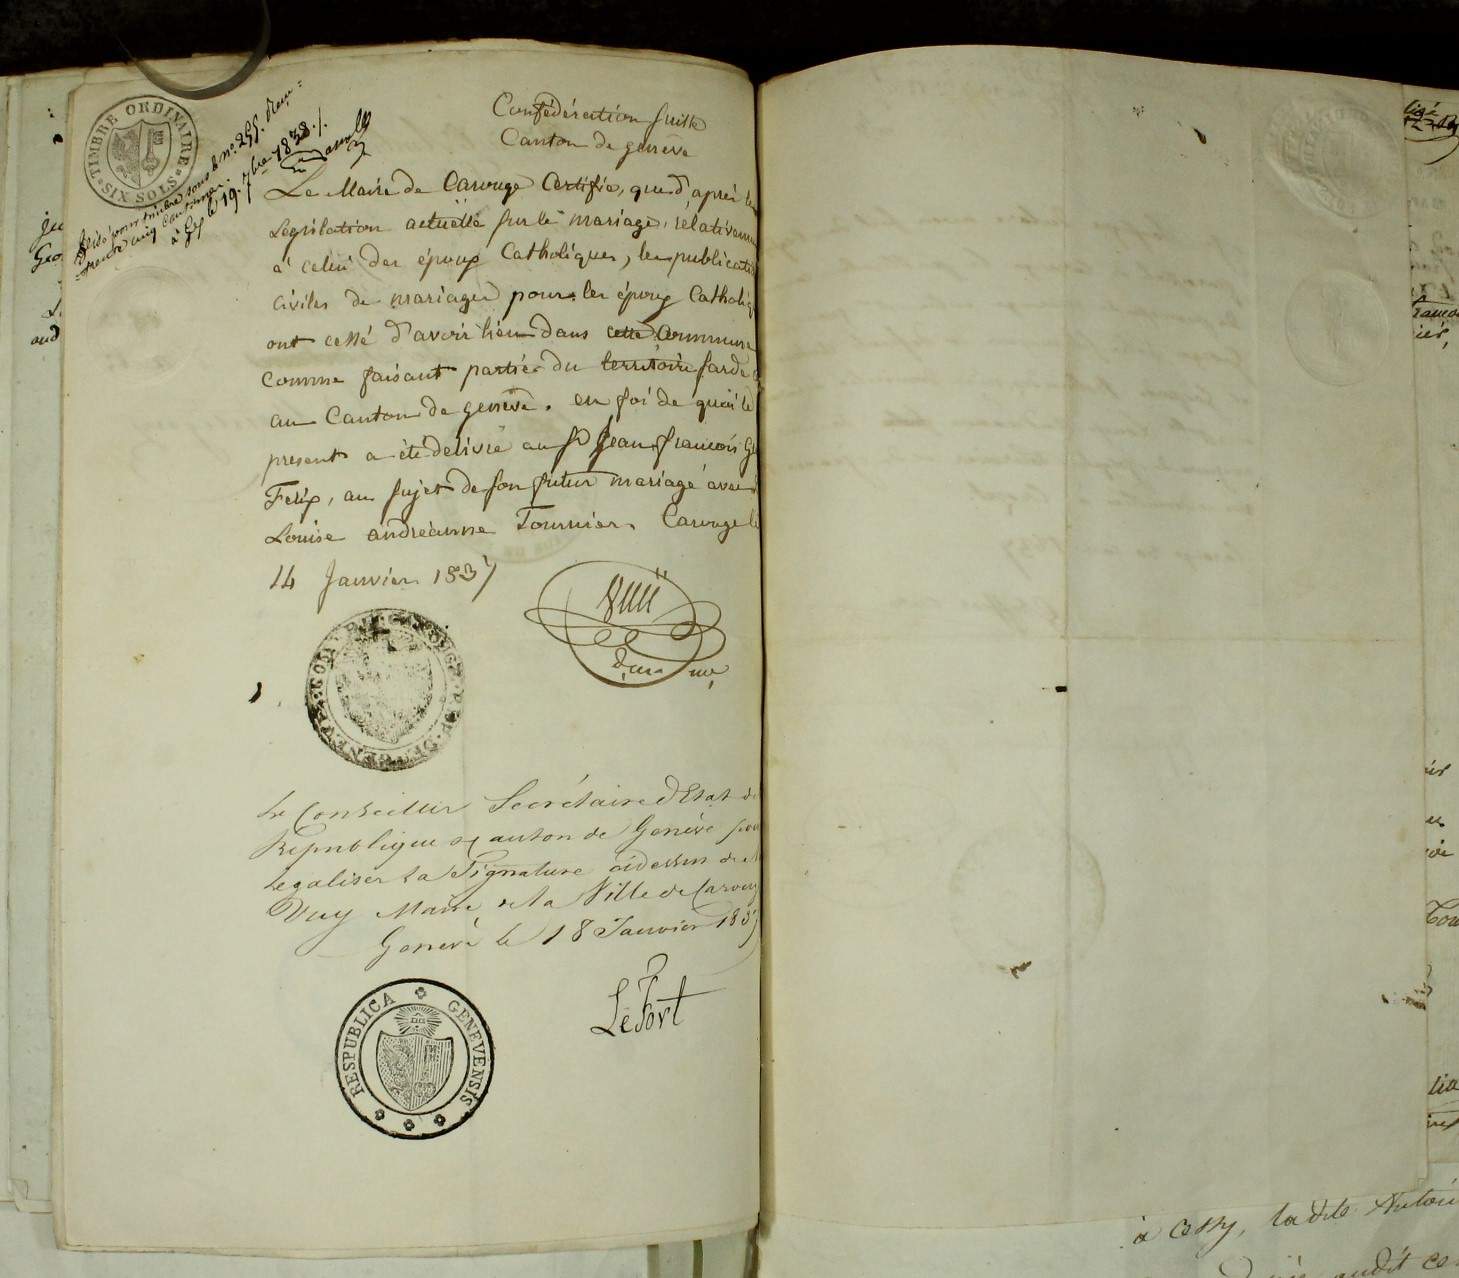 TIMBRE ORDINAIRE
SIX SOLS
Visé pour timbre sous le no. 255. Reçu
trente cinq centimes.
à Gex le 19. 7bre 1838./.
Confédération suisse
Canton de genève
Le Maire de Carouge Certifie, que d'après la
Législation actuelle sur le mariage, relativeme
à celui des époux Catholiques, les publicati
civiles de mariages pour les époux Catholiq
ont cessé d'avoir lieu dans cette Commune
comme faisant partie du territoire sarde
au Canton de genève. en foi de quoi le
present a été délivré au Sr Jean françois
Felix, au sujet de son futur mariage avec
Louise andréanne Tournier. Carouge le
14 Janvier 1837
Le Conseiller Secrétaire d'Etat de
République & canton de Genève pour
légaliser la Signature cidessus de M
Vuy Maire de la Ville de Caroug
Genève le 18 Janvier 1837
LeFort
RESPUBLICA GENEVENSIS
à Cessy, ladite Antoi